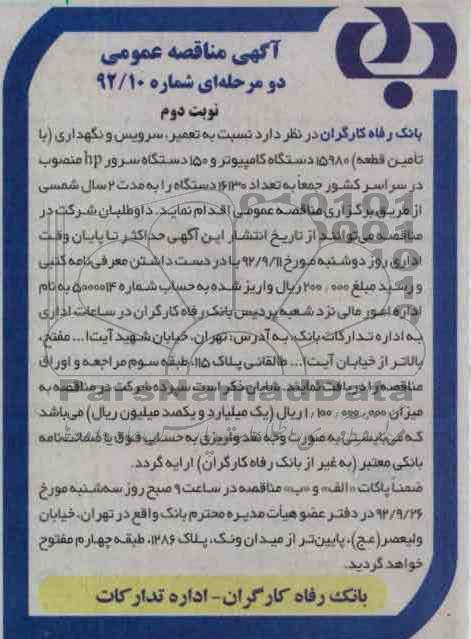 آگهی مناقصه عمومی
دو مرحله‌ای شماره ۹۲/۱۰
نوبت دوم
بانک رفاه کارگران در نظر دارد نسبت به تعمیر، سرویس و نگهداری (با
تأمین قطعه) ۱۵۹۸۰ دستگاه کامپیوتر و ۱۵۰ دستگاه سرور hp منصوب
در سراسر کشور جمعاً به تعداد ۱۶۱۳۰ دستگاه را به مدت ۲ سال شمسی
از طریق برگزاری مناقصه عمومی اقدام نماید. داوطلبان شرکت در
مناقصه می‌توانند از تاریخ انتشار این آگهی حداکثر تا پایان وقت
اداری روز دوشنبه مورخ ۹۲/۹/۱۱ با در دست داشتن معرفی‌نامه کتبی
و رسید مبلغ ۲۰۰٫۰۰۰ ریال واریز شده به حساب شماره ۵۰۰۰۰۱۴ به نام
اداره امور مالی نزد شعبه پردیس بانک رفاه کارگران در ساعات اداری
به اداره تدارکات بانک، به آدرس: تهران، خیابان شهید آیت‌ا... مفتح،
بالاتر از خیابان آیت‌ا... طالقانی پلاک ۱۱۵، طبقه سوم مراجعه و اوراق
مناقصه را دریافت نمایند. شایان ذکر است سپرده شرکت در مناقصه به
میزان ۱٫۱۰۰٫۰۰۰٫۰۰۰ ریال (یک میلیارد و یکصد میلیون ریال) می‌باشد
که می‌بایستی به صورت وجه نقد واریزی به حساب فوق یا ضمانت‌نامه
بانکی معتبر (به غیر از بانک رفاه کارگران) ارایه گردد.
ضمناً پاکات «الف» و «ب» مناقصه در ساعت ۹ صبح روز سه‌شنبه مورخ
۹۲/۹/۲۶ در دفتر عضو هیأت مدیره محترم بانک واقع در تهران، خیابان
ولیعصر (عج)، پایین‌تر از میدان ونک، پلاک ۱۲۸۶، طبقه چهارم مفتوح
خواهد گردید.
بانک رفاه کارگران - اداره تدارکات
ParsNamadData